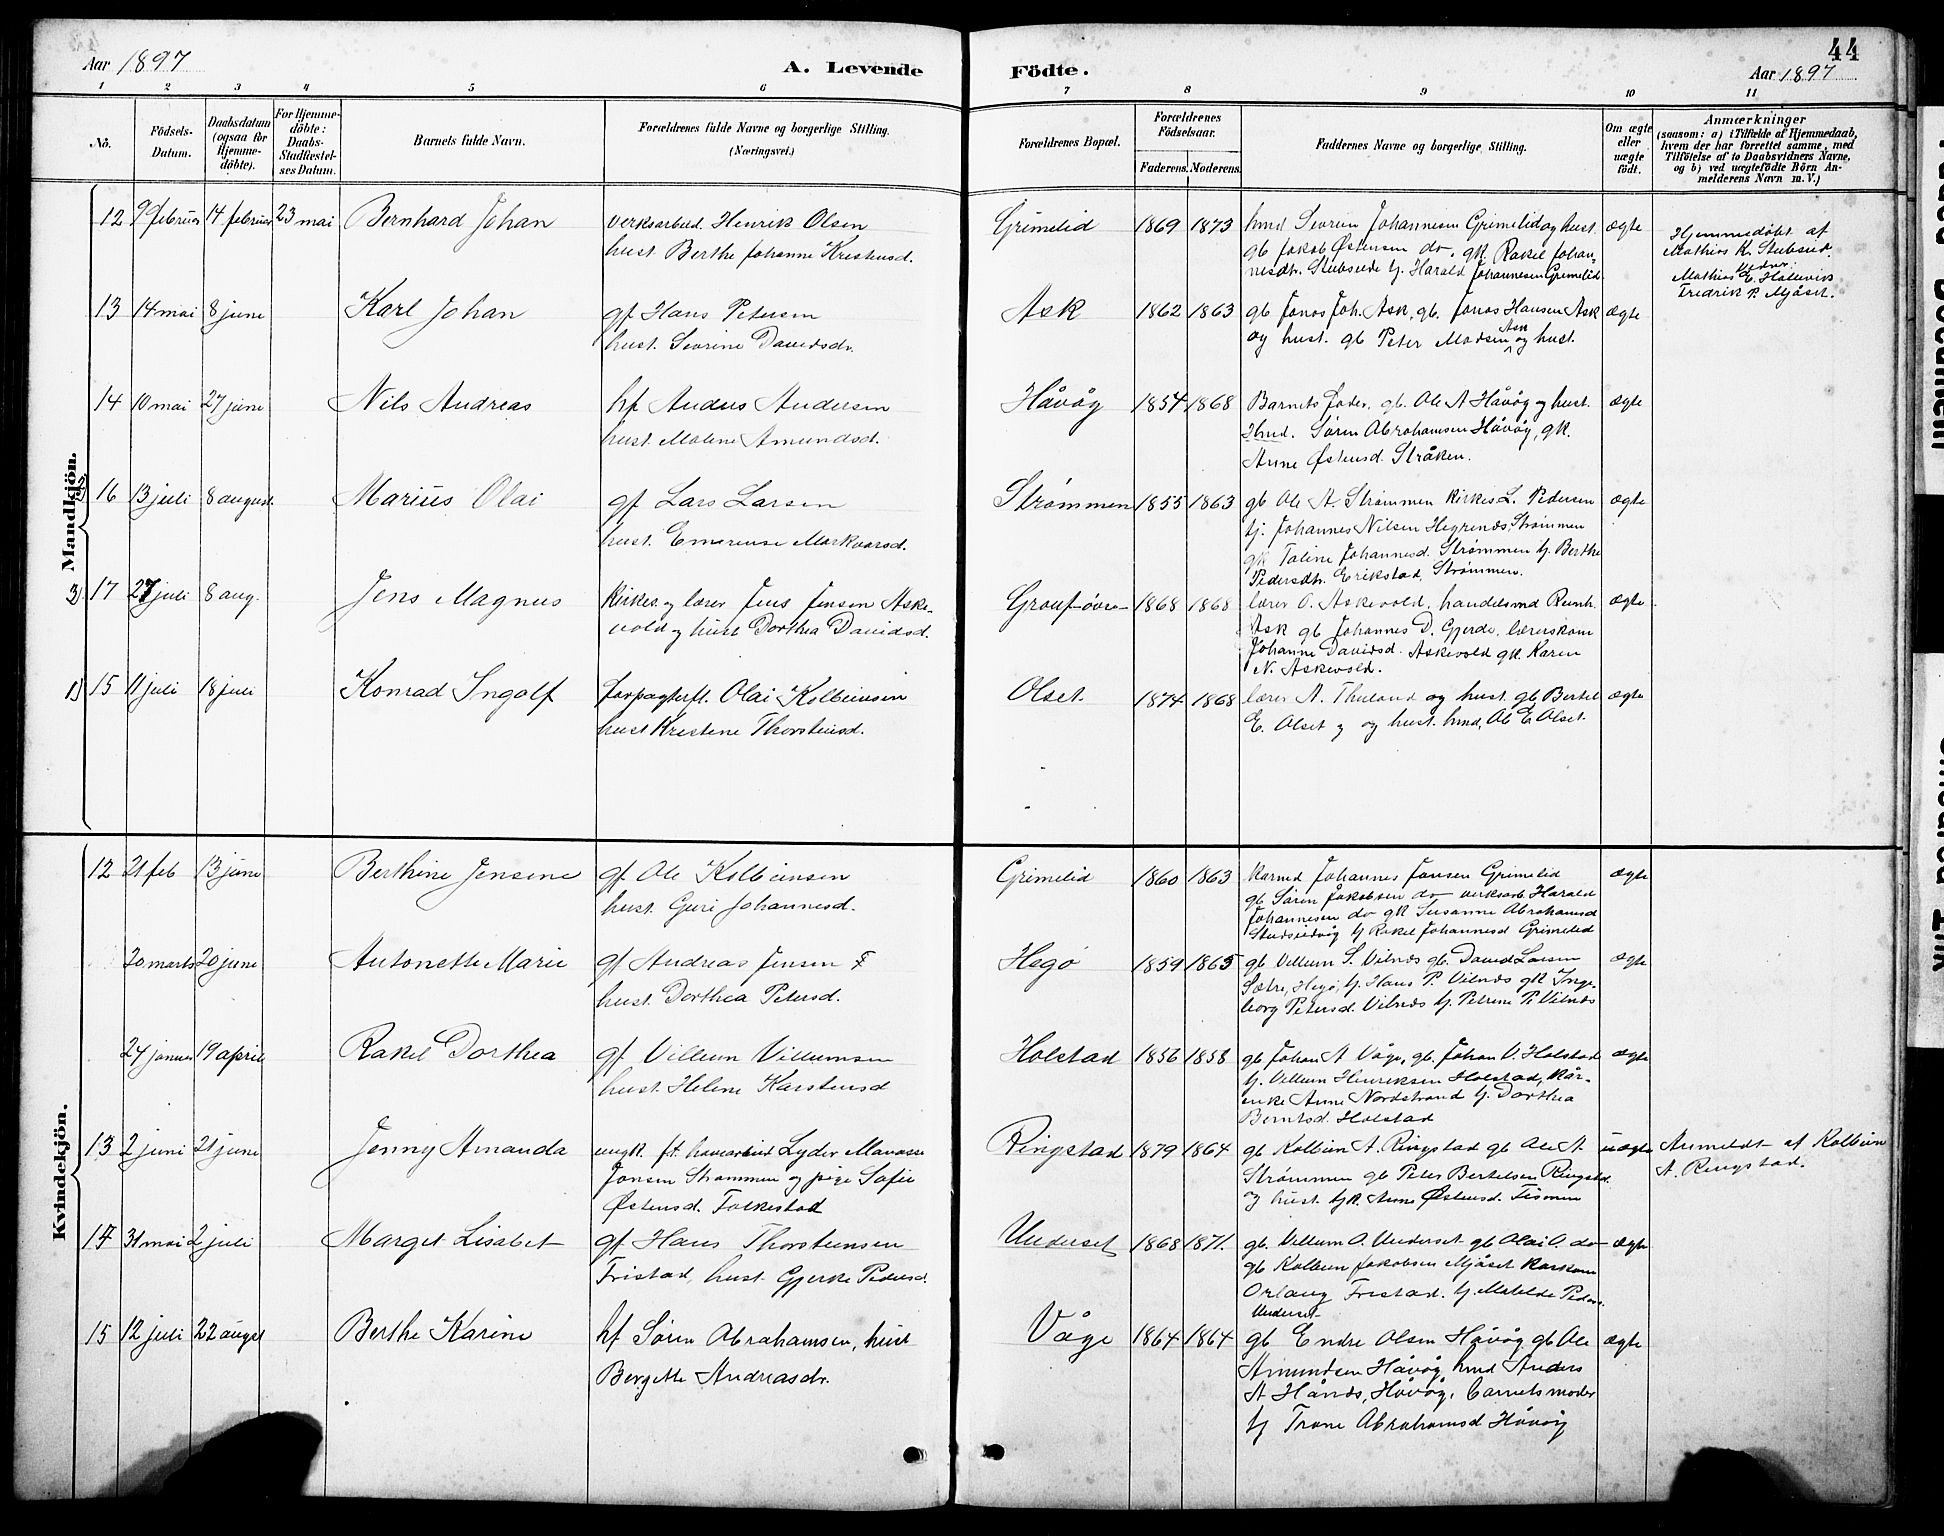 44
Aar 1897
A. Levende
Födte.
Aar 1897
1 2 3 4 5 6 7 8 9 10 11
No.
Födsels-Datum.
Daabsdatum (ogsaa for Hjemme-döbte).
For Hjemme-döbte: Daabs-Stadfæstel-ses Datum.
Barnets fulde Navn.
Forældrenes fulde Navne og borgerlige Stilling.
(Næringsvei.)
Forældrenes Bopæl.
Forældrenes Födselsaar.
Faderens. Moderens.
Faddernes Navne og borgerlige Stilling.
Om ægte eller uægte födt.
Anmærkninger
(saasom: a) i Tilfælde af Hjemmedaab,
hvem der har forrettet samme, med
Tilföielse af to Daabsvidners Navne,
og b) ved uægtefödte Börn An-
melderens Navn m. V.)
Mandkjön.
12 9 februar 14 februar 23 mai Bernhard Johan
Verksarbeid. Henrik Olsen
hust. Berthe Johanne Kristensd.
Grimelid 1869 1873
hmd Severin Johannesen Grimelid og hust.
gb Jakob Østensen do, gk. Rakel Johan-
nesdtr. Stubseide tj. Harald Johannesen Grimelid
ægte
Hjemmedøbt af
Mathias K. Stubseid.
Vidner:
Mathias E. Hallevik
Fredrik P. Mjåset.
13 14 mai 8 june Karl Johan
gf Hans Petersen
hust. Sevrine Davidsdr.
Ask 1862 1863
gb Jonas Joh. Ask, gb. Jonas Hansen Ask
og hust. gb Peter Madsen Ask og hust.
ægte
14 10 mai 27 june Nils Andreas
hf Anders Andersen
hust. Malene Amundsd.
Håvåg 1854 1868
Barnets fader, gb. Ole A Håvåg og hust.
Hmd. Søren Abrahamsen Håvåg, gk.
Anne Østensd. Stråken.
ægte
2) 16 13 juli 8 august. Marius Olai
gf Lars Larsen
hust. Emerense Markvorsd.
Strømmen 1855 1863
gb Ole A. Strømmen kirkes. L. Pedersen
tj. Johannes Nilsen Hegrenæs, Strømmen
gk Taline Johannesd. Strømmen tj. Berthe
Pedersdtr. Erikstad, Strømmen.
ægte
3) 17 27 juli 8 aug. Jens Magnus
Kirkes. og lærer Jens Jensen Aske-
vold og hust Dorthea Davidsd.
Grouf øvre 1868 1868
lærer O. Askevold, handelsmd Reinh.
Ask gb Johannes D. Gjerde, lærerskone
Johanne Davidsd. Askevold gk. Karen
N. Askevold.
ægte
1) 15 11 juli 18 juli Konrad Ingolf
forpagterft. Olai Kolbeinsen
hust Kristine Thorsteinsd.
Olset. 1874 1868
lærer A. Thuland og hust. gb Bertel
E. Olset og hust. hmd, Ole E Olset.
ægte
Kvindekjön.
12 21 feb 13 june Berthine Jensine
gf. Ole Kolbeinsen
hust. Guri Johannesd.
Grimelid 1860 1863
karmd Johannes Jonsen Grimelid
gb Søren Jakobsen do verksarb Harald
Johannesen do gk Susanne Abrahamsd
Stubseidvåg tj Rakel Johannesd Grimelid
ægte
20 marts 20 june Antonette Marie
gf Andreas Jensen
hust. Dorthea Petersd.
Hegø 1859 1865
gb Villum S. Vilnæs gb. David Larsen
Sætre, Hegø, tj. Hans P. Vilnæs gk Inge-
borg Petersd. Vilnæs tj. Petrine P. Vilnæs
ægte
27 januar 19 april Rakel Dorthea
gf Villum Villumsen
hust. Helene Karstensd
Holstad 1856 1858
gb Johan A Våge, gb. Johan V. Holstad
tj. Villum Henriksen Holstad, kår-
enke Anne Nordstrand tj. Dorthea
Berntsd. Holstad
ægte
13 2 juni 21 june Jenny Amanda
ungk. ft. havearbeid Lyder Manasse
Jonsen Strømmen og pige Sofie
Østensd. Folkestad
Ringstad 1879 1864
gb Kolbein A. Ringstad gb Ole A.
Strømmen gb Peter Bertelsen Ringstad
og hust. tjk. Anne Østensd.
uægte
Anmeldt af Kolbein
A. Ringstad.
14 31 mai 2 juli Marget Lisabet
gf Hans Thorsteinsen
Fristad, hust. Gjerke Pedersd.
Underset 1868 1871.
gb. Villum O. Underset gb Olai O. do
gb Kolbein Jakobsen Mjåset karkone
Orlaug Fristad. tj. Matilde Peders.
Underset
ægte
15 12 juli 22 august Berthe Karine
hf Søren Abrahamsen, hust
Bergette Andreasdr.
Våge 1864 1864
gb Endre Olsen Håvåg, gb Ole
Amundsen Håvåg hmd Anders
A Hånæs, Håvåg, barnets moder
tj Trane Abrahamsd Håvåg
ægte